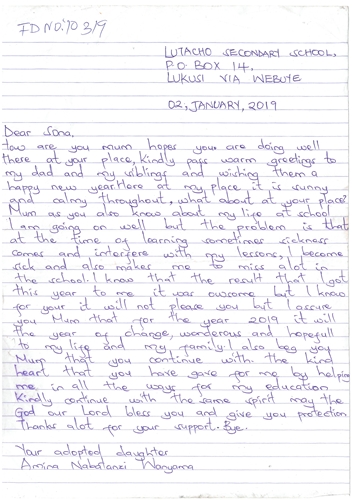 ID NO: 10319
LUTACHO SECONDARY SCHOOL,
P.O BOX 14,
LUKUSI VIA WEBUYE
02, JANUARY, 2019
Dear Sona,
How are you mum hopes you are doing well
there at your place, kindly pass warm greetings to
my dad and my siblings and wishing them a
happy new year. Here at my place it is sunny
and calmy throughout, what about at your place?
Mum as you also know about my life at school
I am going on well but the problem is that
at the time of learning sometimes sickness
comes and interfere with my lessons, I become
sick and also makes me to miss alot in
the school. I know that the result that I got
this year to me it was owsome but I know
for your it will not please you but I assure
you Mum that for the year 2019 it will
the year of change, wonderous and hopefull
to my life and my family. I also beg you
Mum that you continue with the kind
heart that you have gave for me by helping
me in all the ways for my education
Kindly continue with the same spirit may the
God our Lord bless you and give you protection
Thanks alot for your support. Bye.
Your adopted daughter
Amina Nabatanzi Wanyama